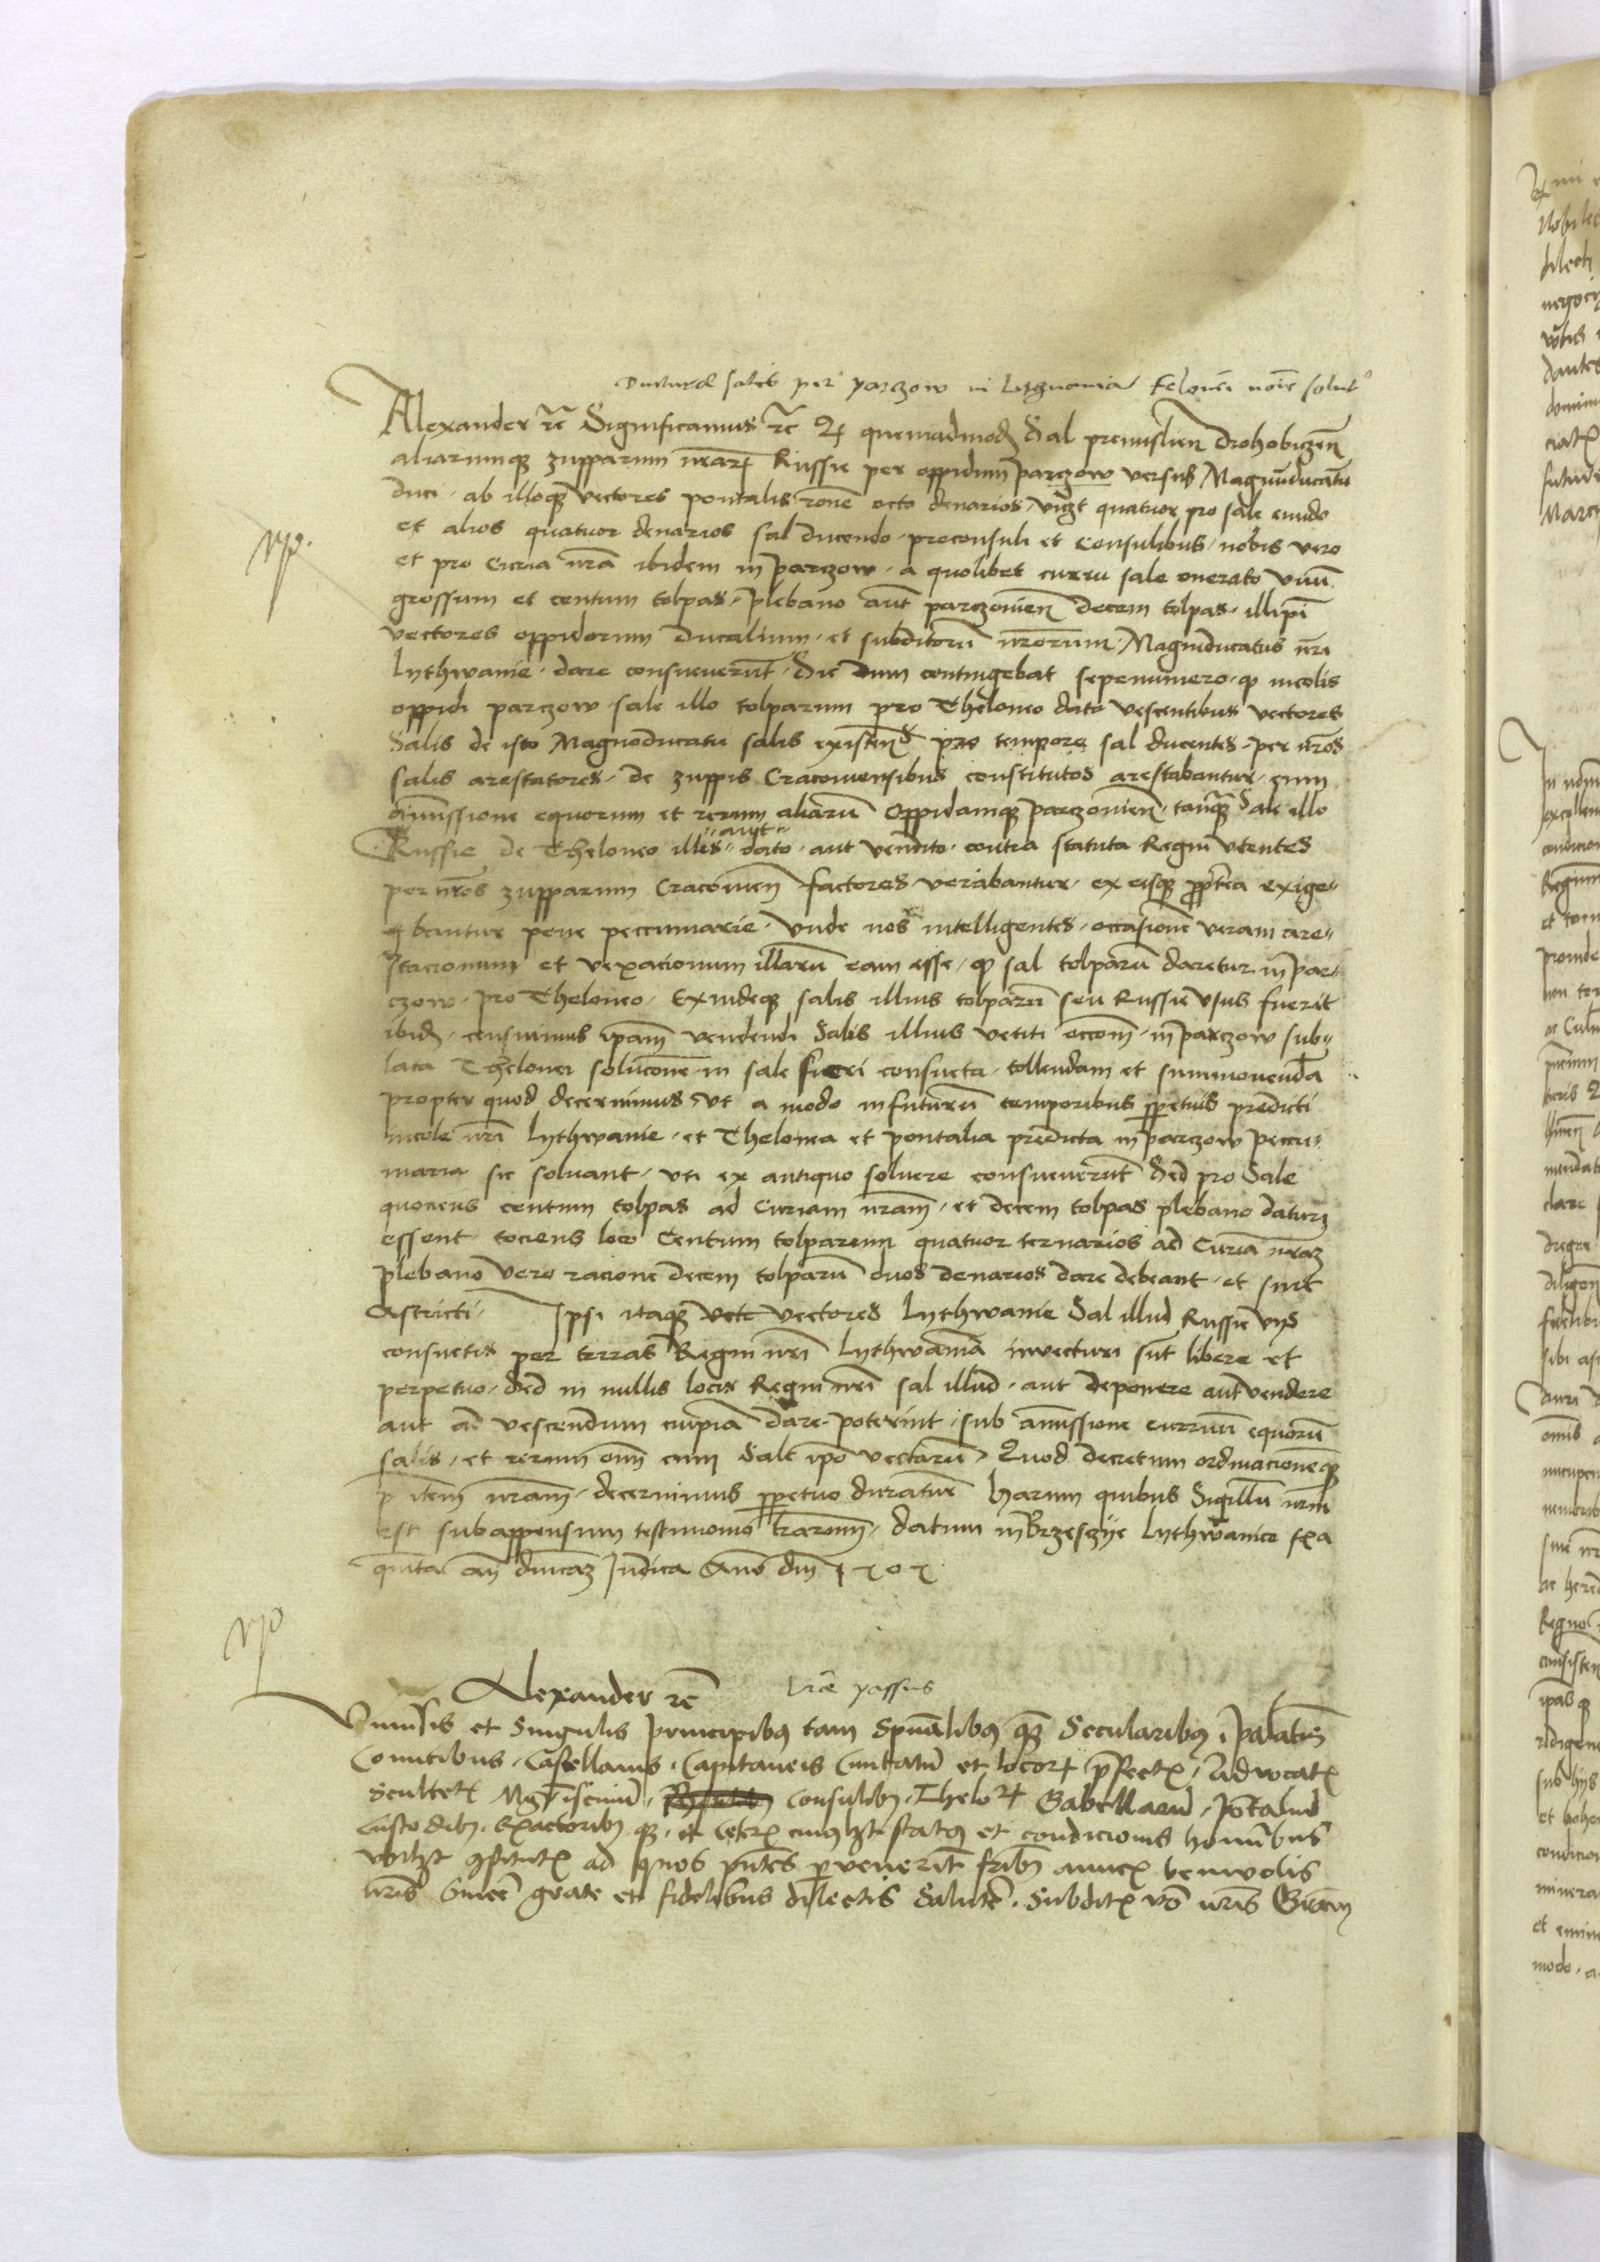 Ducturae salis per parczow in Lytuania Telonei noie solut
Alexander rc Significamus rc Q quemadmodu Sal premislien Drohobiczen
aliarumque zupparum nrar Russie per oppidum parczow versus Magnuducatu
duci ab illoque vectores pontalis rone octo denarios vizt quatuor pro sale emendo
et alios quatuor denarios sal ducendo proconsuli et consulibus nobis vero
et pro curia nra ibidem in parczow a quolibet curru sale onerato unu
grossum et centum tolpas plebano aut parczovien decem tolpas illipi
vectores oppidorum ducalium et subditoru nrorum Magniducatus nri
Lythwanie dare consueverut Sic dum contingebat sepenumero q incolis
oppidi parczow sale illo tolparum pro Theloneo dato vescentibus vectores
Salis de isto Magnoducatu salis existen pro tempore sal ducentes per nros
salis arestatores de zuppis Cracoviensibus constitutos arestabantur cum
amissione equorum et rerum aliaru Oppidanique parczovien tanq Sale illo
Russie de Theloneo illis aut dato aut vendito contra statuta Regni utentes
per nros zupparum Cracovien factores vexabantur ex eisque pptea exige
bantur pene peccuniarie Unde nos intelligentes occasione veram are
stacionum et vexacionum illaru eam esse q sal tolparu daretur in par
czow pro Theloneo Exindeque salis illius tolparu seu Russie usus fuerit
ibid censuimus ipam vendendi Salis illius vetiti occom in parczow sub
lata Thelonei solucone in sale fieri consueta tollendam et summovenda
propter quod decernimus ut a modo infuturu temporibus ppetuis predicti
incole nri Lythwanie et Thelonea et pontalia predicta in parczow peccu
niaria sic solvant uti ex antiquo solvere consueverut Sed pro Sale
quociens centum tolpas ad Curiam nram et decem tolpas plebano daturi
essent tociens loco Centum tolparum quatuor ternarios ad Curia nram
plebano vero racione decem tolparu duos denarios dare debeant et sint
astricti Ipsi itaque vectores Lythwanie Sal illud Russie viis
consuetis per terras Regni nri Lythwania invecturi sut libere et
perpetuo Sed in nullis locis Regni nri sal illud aut deponere aut vendere
aut ad vescendum cuipia dare poterint sub amissione curruu equoru
salis et rerum om cum Sale ipo vectaru Quod decretum ordinacioneque
nram decernimus ppetuo duraturu harum quibus Sigillu nrm
est subappensum testimonio lrarum datum in Brzesczye Lythwanice fxa
quinta an dnicam Judica Ano dni 1505
Alexander rc Lrae passus
Universis et Singulis principibus tam Spualibus q Secularibus Palatis
Comitibus Castellanis Capitaneis Civitatu et locor pfectis Advocatis
Scultetis Mgris civiu Consulibus Thelor Gabellaru Pontaliu
Custodibus Exactoribus q et ceteris cuiuslzt status et condicionis hominibus
ubilzt constitutis ad quos pntes pervenerit fribus amicis benivolis
nris syncere grate et fidelibus dilectis Salute Subditis vo nris Graciam